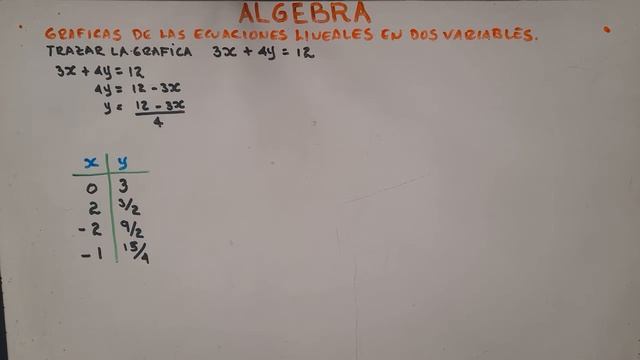 ALGEBRA
GRAFICAS DE LAS ECUACIONES LINEALES EN DOS VARIABLES.
TRAZAR LA GRAFICA 3x + 4y = 12
3x + 4y = 12
4y = 12 - 3x
y = 12 - 3x / 4
x y
0 3
2 3/2
-2 9/2
-1 15/4